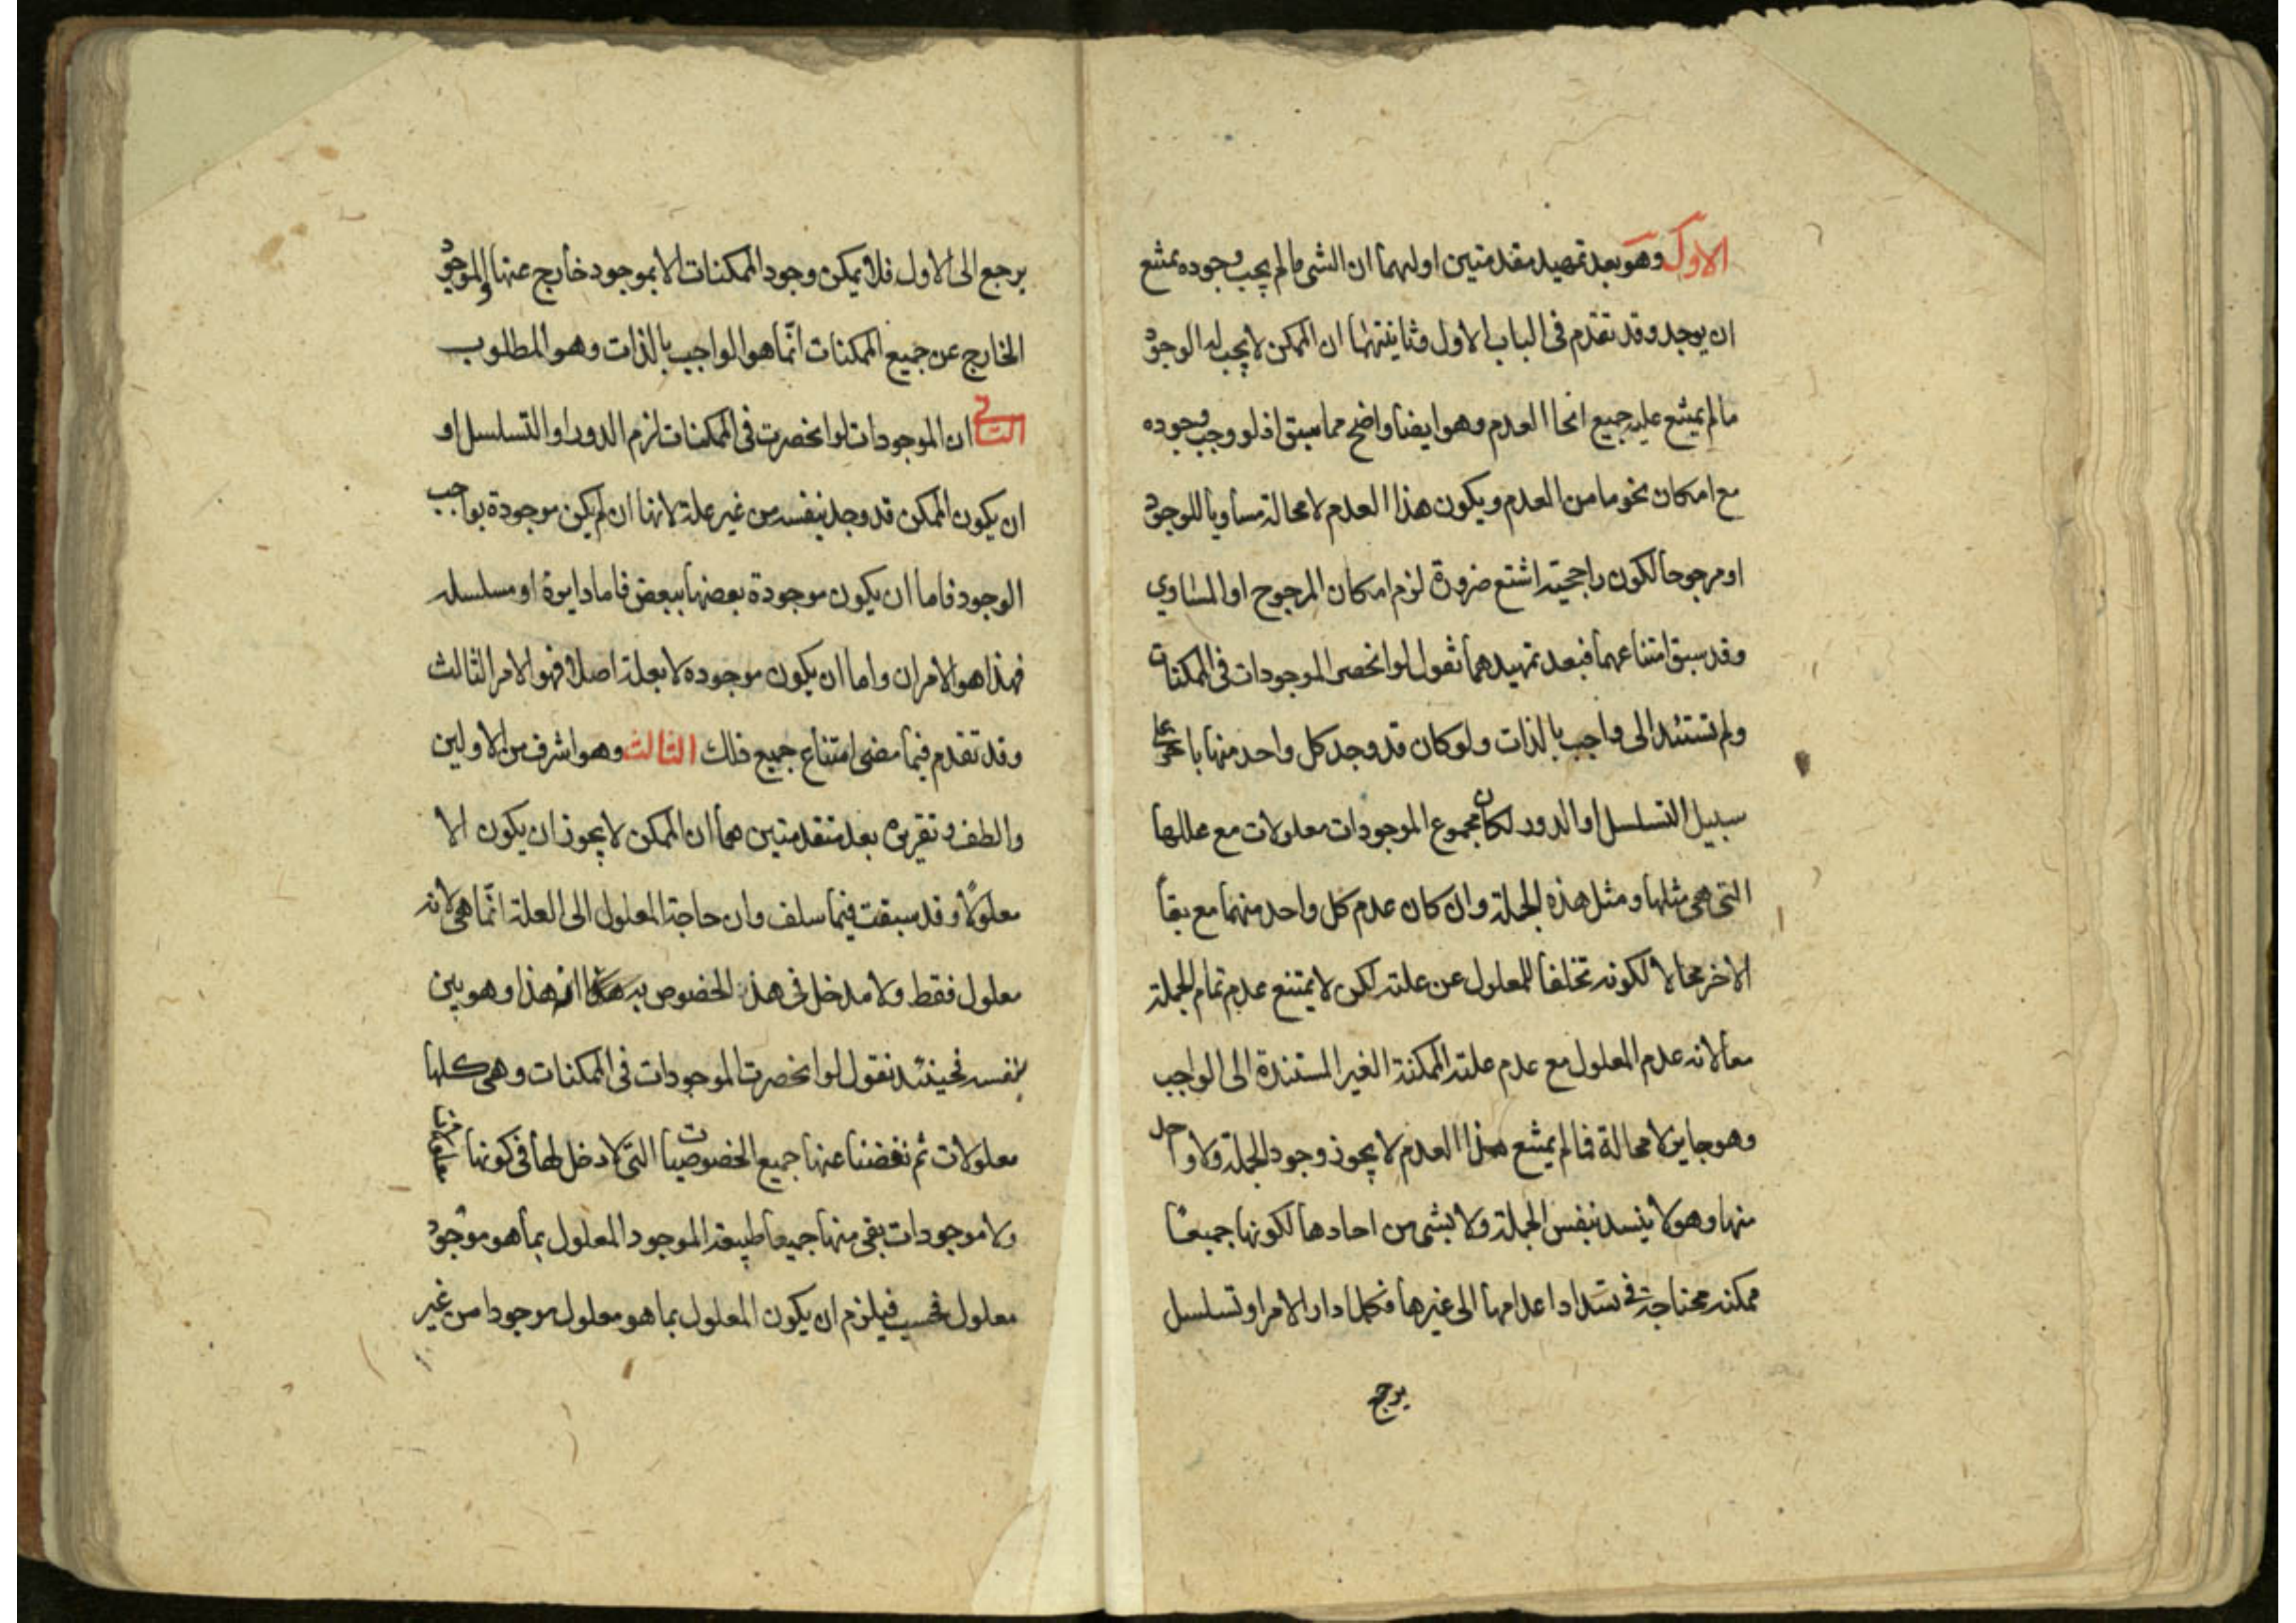 الاول وهو بعد تمهيد مقدمتين اولهما ان الشى مالم يجب وجوده يمتنع
ان يوجد وقد تقدم فى الباب الاول وثانيتهما ان الممكن لا يجب له الوجود
مالم يمتنع عليه جميع انحا العدم وهو ايضا واضح مما سبق اذ لو وجب وجوده
مع امكان نحو ما من العدم ويكون هذا العدم لا محالة مساويا للوجود
او مرجوحا لكون راجحيته امتنع ضرورة لزم امكان المرجوح او المساوي
وقد سبق امتناعهما فبعد تمهيدهما نقول لو انحصر الموجودات فى الممكنات
ولم تستند الى واجب بالذات ولو كان قد وجد كل واحد منها باخر على
سبيل التسلسل او الدور لكان مجموع الموجودات معلولات مع عللها
التى هى مثلها ومثل هذه الجملة وان كان عدم كل واحد منهما مع بقا
الاخر محالا لكونه تخلفا للمعلول عن علته لكن لا يمتنع عدم تمام الجملة
معا لانه عدم المعلول مع عدم علته الممكنة الغير المستندة الى الواجب
وهو جايز لا محالة فمالم يمتنع هذا العدم لا يجوز وجود الجملة ولا واحد
منها وهو لا ينسد بنفس الجملة ولا بشى من احادها لكونها جميعا
ممكنه محتاجة فى انسداد اعدامها الى غيرها فكلما دار الامر او تسلسل
يرجع
يرجع الى الاول فلا يمكن وجود الممكنات الا بموجود خارج عنها والموجود
الخارج عن جميع الممكنات انّما هو الواجب بالذات وهو المطلوب
الثانى ان الموجودات لو انحصرت فى الممكنات لزم الدور او التسلسل او
ان يكون الممكن قد وجد بنفسه من غير علة لانها ان لم يكن موجودة بواجب
الوجود فاما ان يكون موجودة بعضها ببعض فاما دايرة او مسلسله
فهذا هو الامران واما ان يكون موجوده لا بعلة اصلا فهو الامر الثالث
وقد تقدم فيما مضى امتناع جميع ذلك الثالث وهو اشرف من الاولين
والطف وتقريره بعد متقدمتين هما ان الممكن لا يجوز ان يكون الا
معلولًا وقد سبقت فيما سلف وان حاجة المعلول الى العلة انّما هى لانه
معلول فقط ولا مدخل فى هذ الخصوص هذا وهو بين
بنفسه فحينئذ نقول لو انحصرت الموجودات فى الممكنات وهى كلها
معلولات ثم نفضنا عنها جميع الخصوصيات التى لا دخل لها فى كونها معلولات
ولا موجودات بقى منها جميعا طبيعة الموجود المعلول بما هو موجود
معلول فحسب فيلزم ان يكون المعلول بما هو معلول موجودا من غير